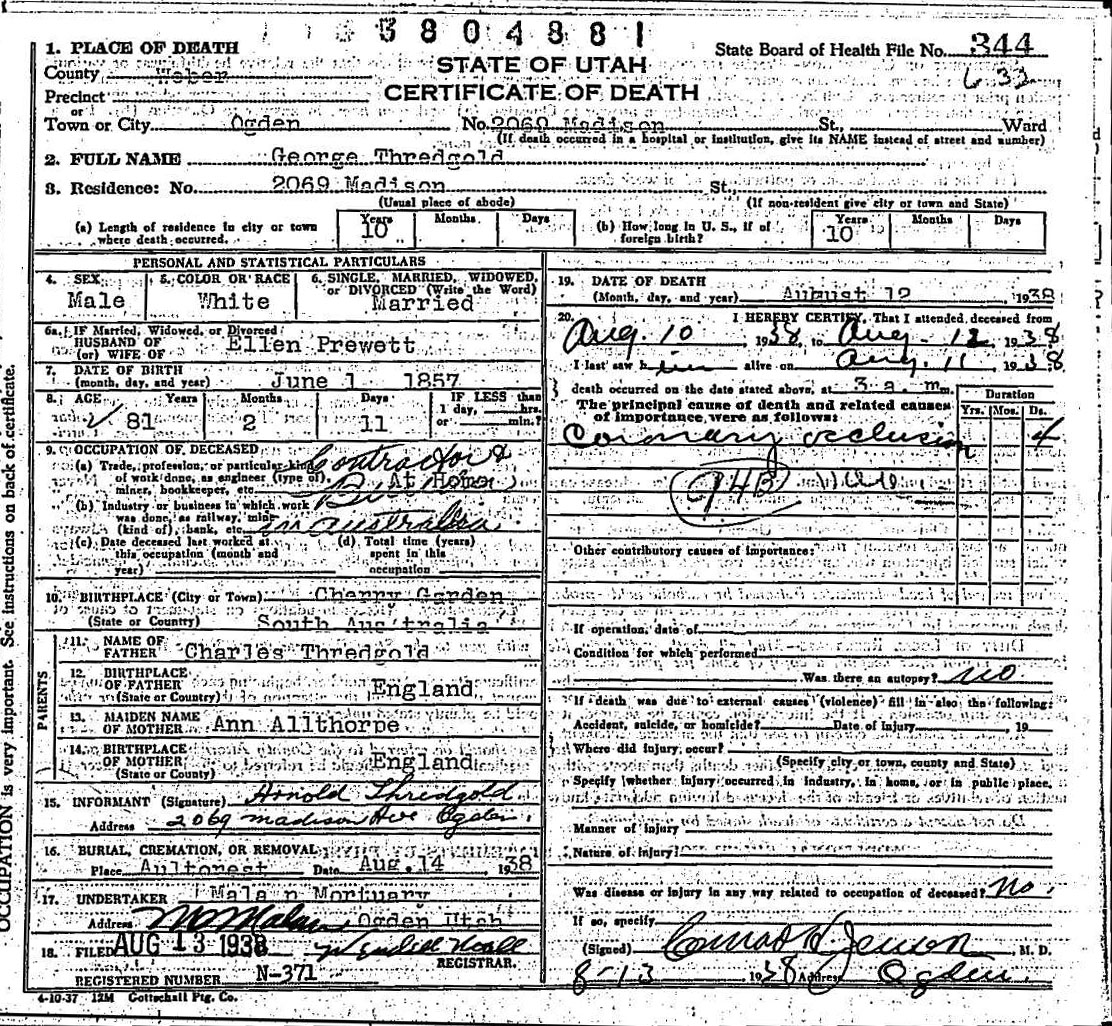 3804881
1. PLACE OF DEATH
State Board of Health File No. 344
County Weber
STATE OF UTAH
633
Precinct
CERTIFICATE OF DEATH
or
Town or City Ogden No. 2069 Madison St., Ward
(If death occurred in a hospital or institution, give its NAME instead of street and number)
2. FULL NAME George Thredgold
3. Residence: No. 2069 Madison St.
(Usual place of abode) (If non-resident give city or town and State)
(a) Length of residence in city or town where death occurred. Years 10 Months Days
(b) How long in U. S., if of foreign birth? Years 10 Months Days
PERSONAL AND STATISTICAL PARTICULARS
4. SEX Male
5. COLOR OR RACE White
6. SINGLE, MARRIED, WIDOWED, or DIVORCED (Write the Word) Married
6a. IF Married, Widowed, or Divorced
HUSBAND OF
(or) WIFE OF Ellen Prewett
7. DATE OF BIRTH
(month, day, and year) June 1 1857
8. AGE Years 81 Months 2 Days 11 IF LESS than 1 day, hrs. or min.?
9. OCCUPATION OF DECEASED
(a) Trade, profession, or particular kind of work done, as engineer (type of), miner, bookkeeper, etc. Contractor & At Home
(b) Industry or business in which work was done, as railway, mine (kind of), bank, etc. in Australia
(c) Date deceased last worked at this occupation (month and year)
(d) Total time (years) spent in this occupation
10. BIRTHPLACE (City or Town) Cherry Garden
(State or Country) South Australia
PARENTS
11. NAME OF FATHER Charles Thredgold
12. BIRTHPLACE OF FATHER (State or Country) England
13. MAIDEN NAME OF MOTHER Ann Allthorpe
14. BIRTHPLACE OF MOTHER (State or County) England
15. INFORMANT (Signature) Arnold Thredgold
Address 2069 Madison Ave Ogden
16. BURIAL, CREMATION, OR REMOVAL
Place Aultorest Date Aug. 14 1938
17. UNDERTAKER Malan Mortuary
Address Ogden Utah
18. FILED AUG 13 1938
REGISTRAR.
REGISTERED NUMBER N-371
4-10-37 12M Gottschall Ptg. Co.
19. DATE OF DEATH
(Month, day, and year) August 12 1938
20. I HEREBY CERTIFY, That I attended deceased from
Aug. 10 1938 to Aug. 12 1938
I last saw him alive on Aug. 11 1938
death occurred on the date stated above, at 3 a. m.
The principal cause of death and related causes of importance were as follows:
Duration
Yrs. Mos. Ds.
Coronary occlusion 4
94B
Other contributory causes of importance:
If operation, date of
Condition for which performed
Was there an autopsy? no
If death was due to external causes (violence) fill in also the following:
Accident, suicide, or homicide? Date of Injury 19
Where did injury occur?
(Specify city or town, county and State)
Specify whether injury occurred in industry, in home, or in public place,
Manner of injury
Nature of injury
Was disease or injury in any way related to occupation of deceased? no.
If so, specify
(Signed) Conrad H Jenson, M. D.
8-13 1938 Address Ogden
OCCUPATION is very important. See instructions on back of certificate.